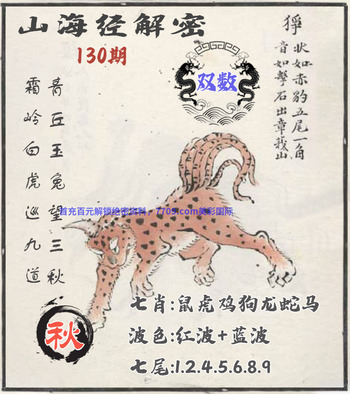 山海经解密
130期
双数
狰
状如赤豹五尾一角
音如擊石出章莪山
青丘玉兔望三秋
霜岭白虎巡九道
首充百元解锁绝密资料：7709.com美彩国际
秋
七肖:鼠虎鸡狗龙蛇马
波色:红波+蓝波
七尾:1.2.4.5.6.8.9